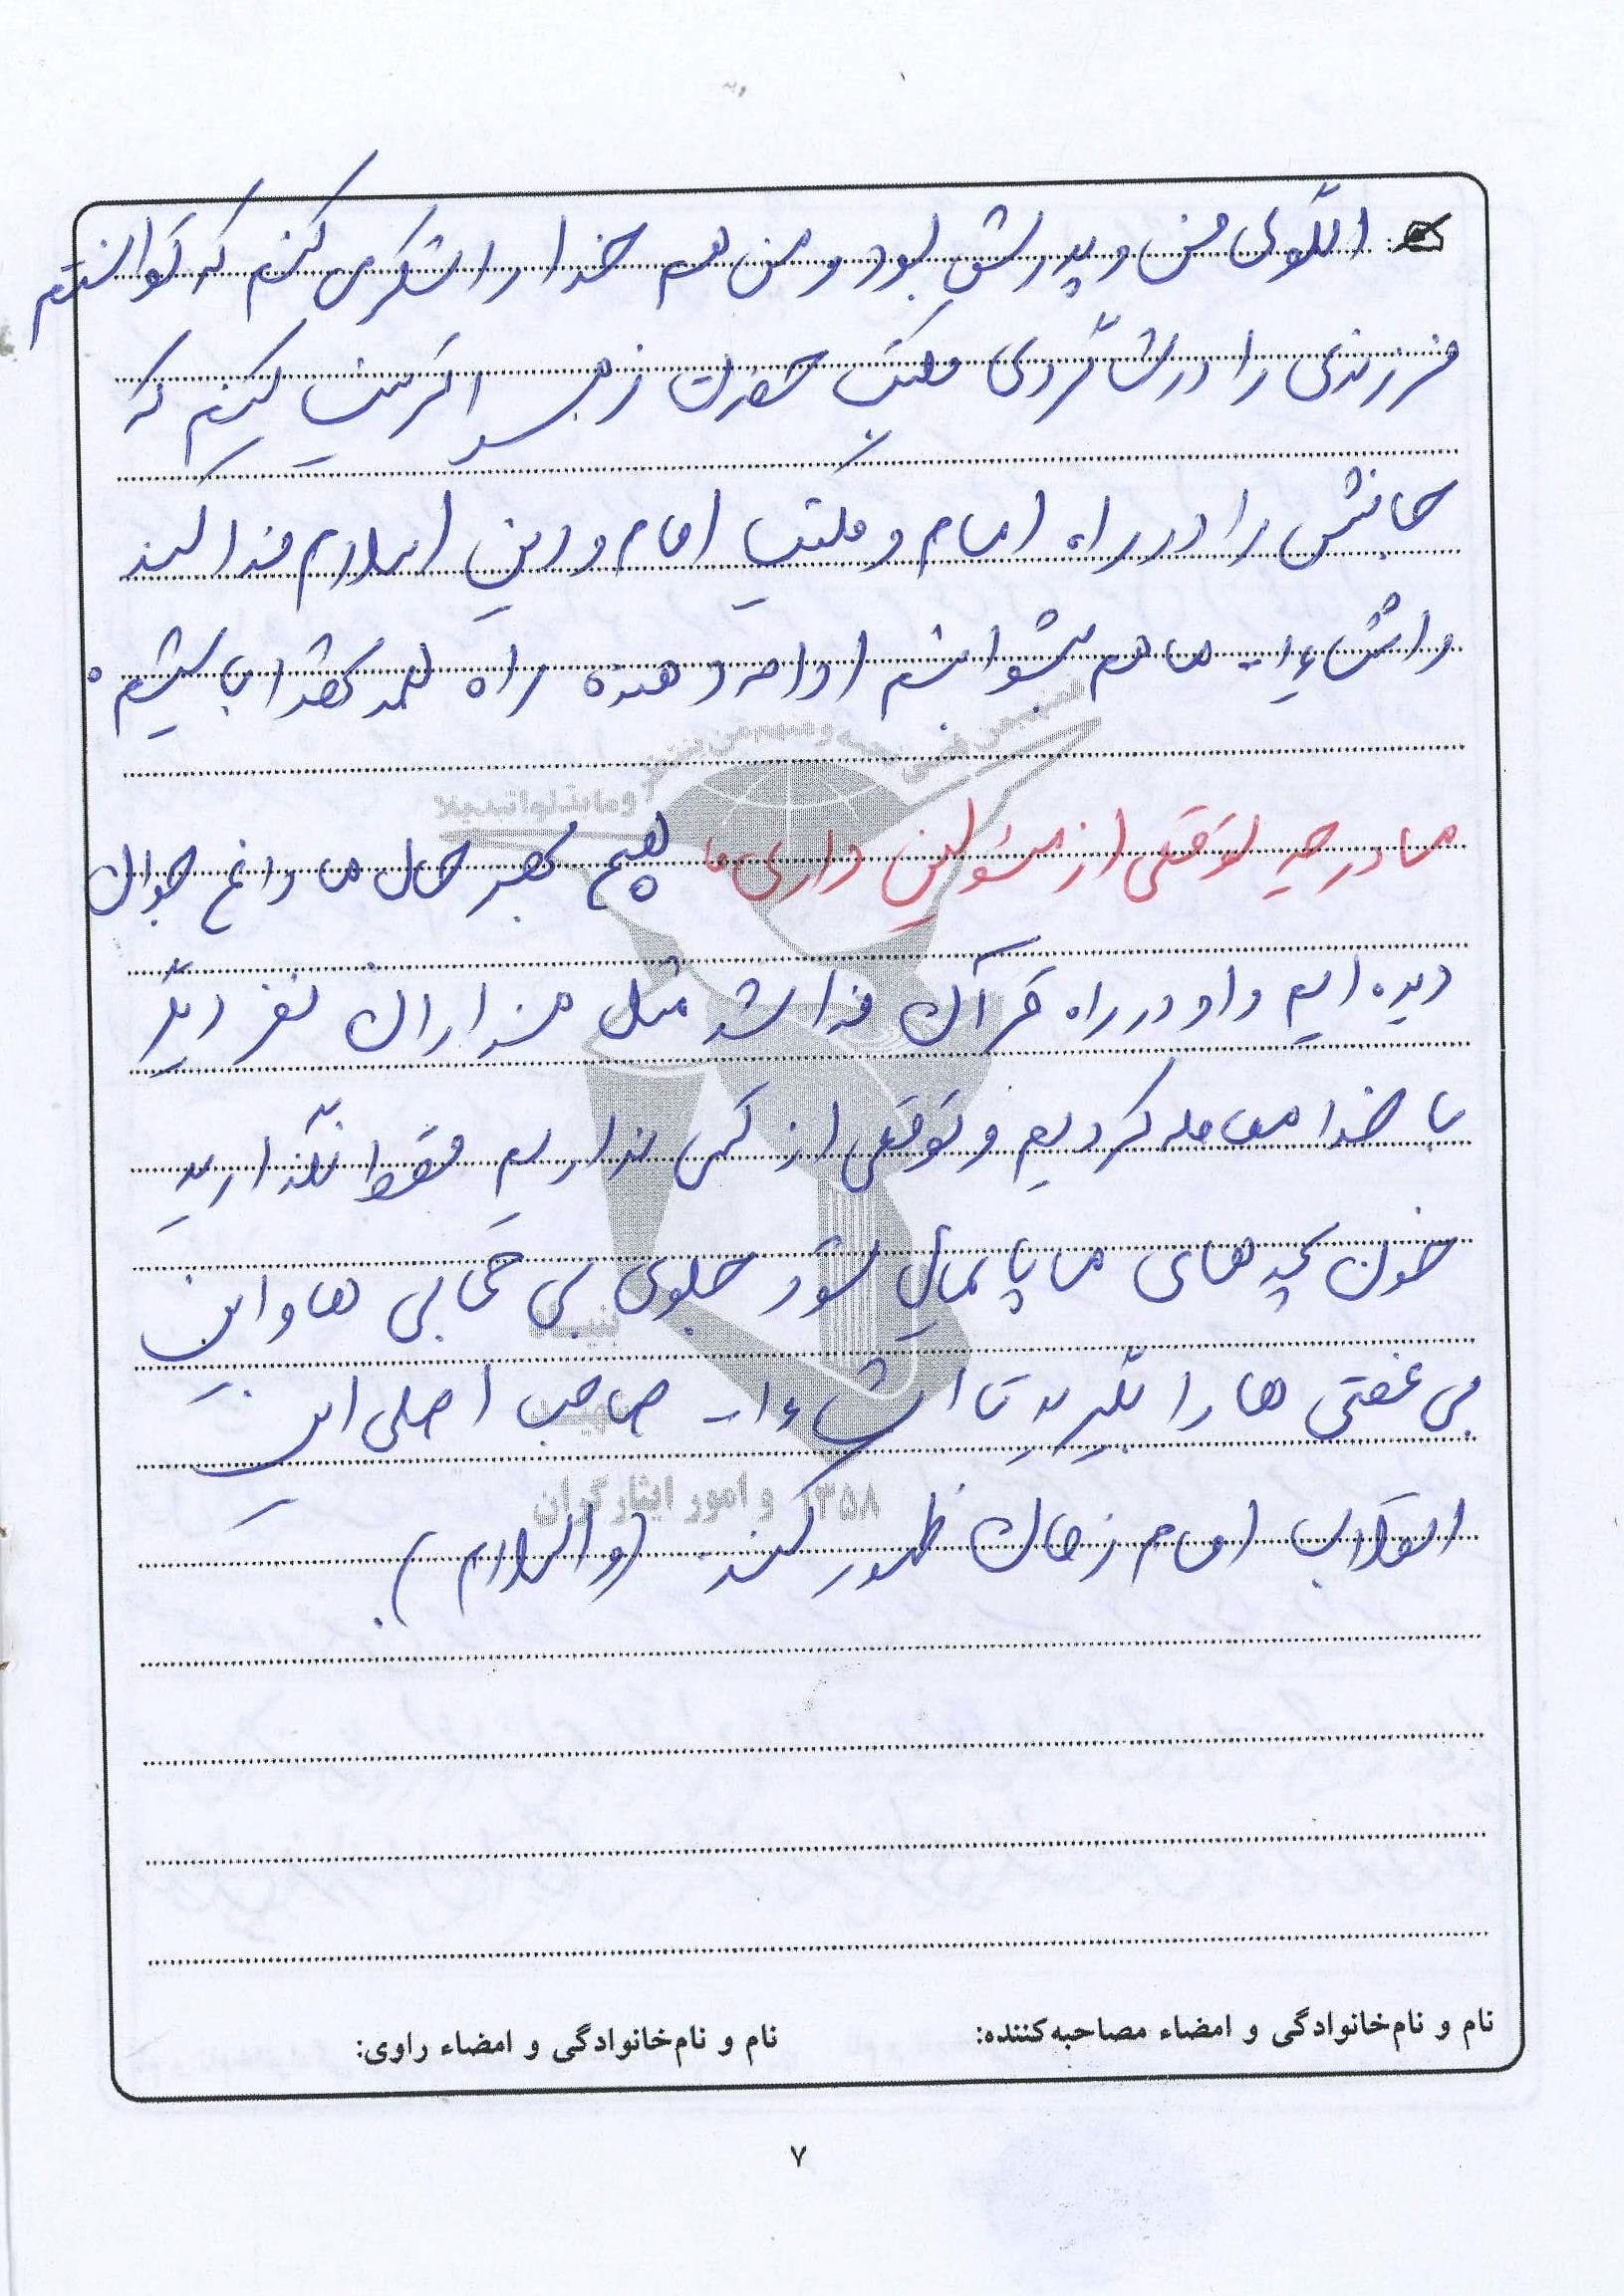 الگوی من و پدرش بود و من هم خدا را شکر می کنم که توانستم
فرزندی را در شاگردی مکتب حضرت زهرا تربیت کنم که
جانش را در راه امام و مکتب امام و دین اسلام فدا کند
و انشاءا... ما هم بتوانیم ادامه دهنده راه باشیم.
مادر چه توقعی از مسئولین داری؟ هیچ بهر حال ما داغ جوان
دیده ایم و او در راه قرآن فدا شد مثل هزاران نفر دیگر
با خدا معامله کردیم و توقعی از کسی نداریم فقط نگذارید
خون بچه های ما پایمال شود جلوی بی حجابی ها و این
بی عفتی ها را بگیرید تا انشاءا... صاحب اصلی این
انقلاب امام زمان ظهور کند. (والسلام).
۱۳۵۸ و امور ایثارگران
نام و نام‌خانوادگی و امضاء مصاحبه‌کننده: نام و نام‌خانوادگی و امضاء راوی:
۷